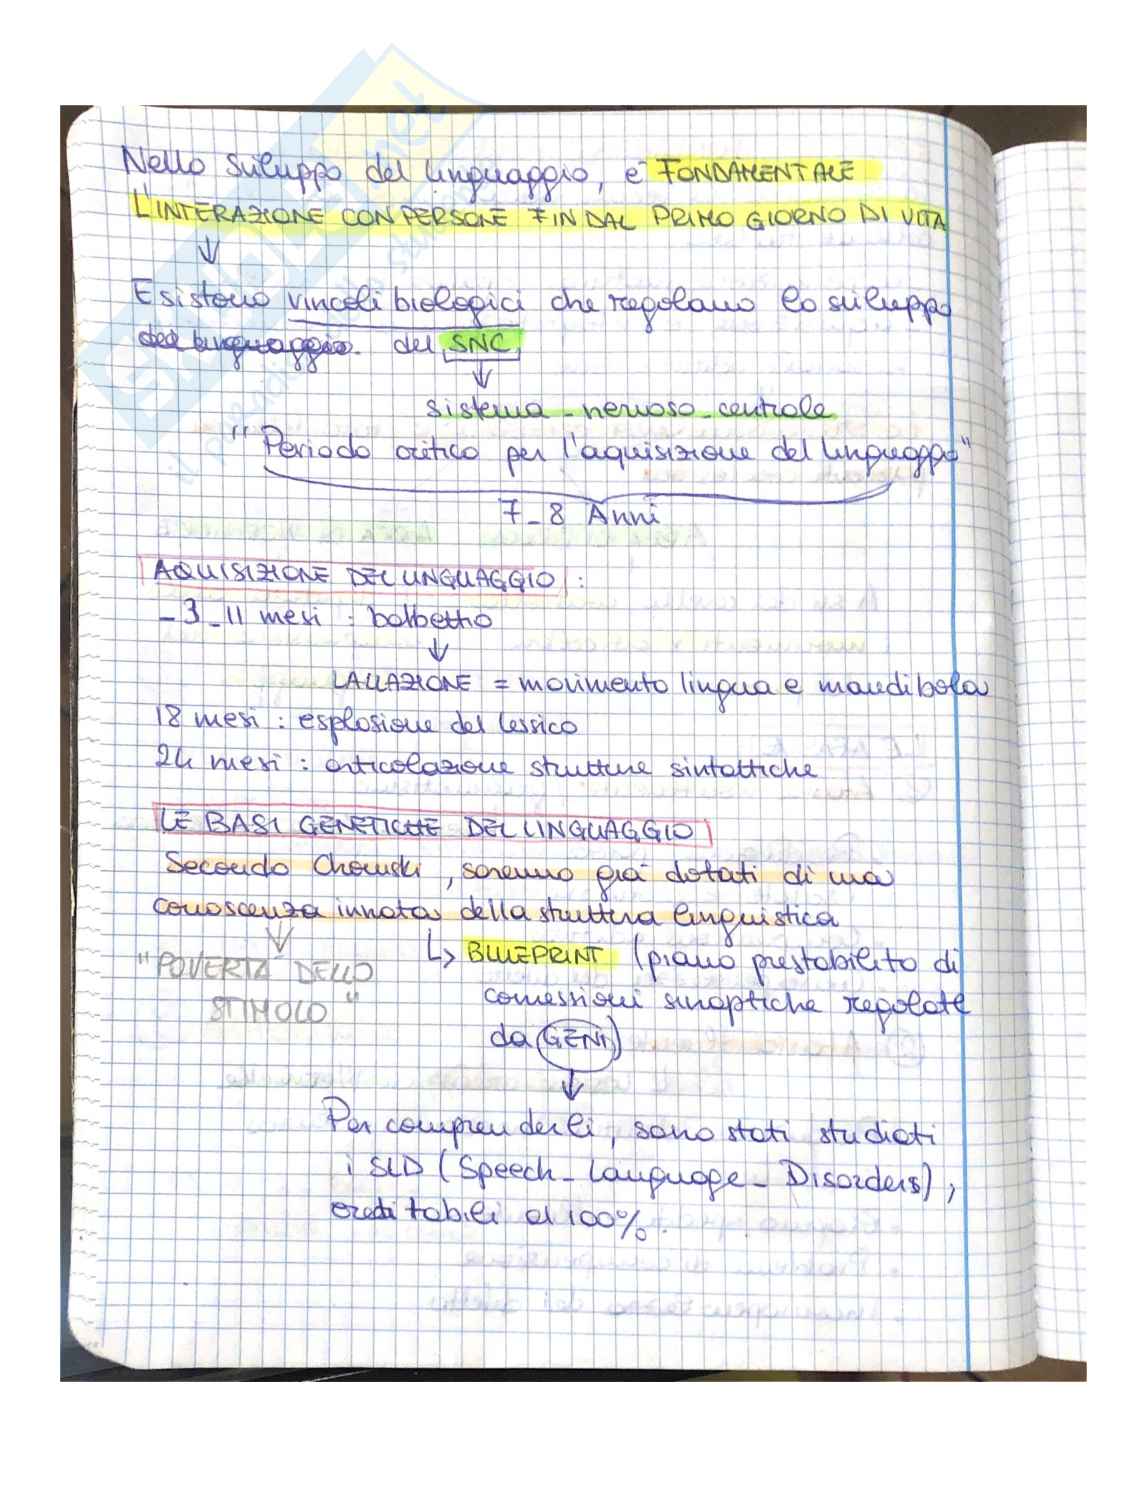 Nello sviluppo del linguaggio, è FONDAMENTALE
L'INTERAZIONE CON PERSONE FIN DAL PRIMO GIORNO DI VITA
↓
Esistono vincoli biologici che regolano lo sviluppo
del linguaggio. del SNC
↓
sistema-nervoso-centrale
"Periodo critico per l'aquisizione del linguaggio"
7-8 Anni
AQUISIZIONE DEL LINGUAGGIO :
-3-11 mesi : balbettio
↓
LALLAZIONE = movimento lingua e mandibola
18 mesi : esplosione del lessico
24 mesi : articolazione strutture sintattiche
LE BASI GENETICHE DEL LINGUAGGIO
Secondo Chomski, saremmo già dotati di una
conoscenza innata della struttura linguistica
↓
"POVERTÀ DELLO
STIMOLO"
↳ BLUEPRINT (piano prestabilito di
connessioni sinaptiche regolate
da GENI)
↓
Per comprenderli, sono stati studiati
i SLD (Speech-Language-Disorders),
ereditabili al 100%.